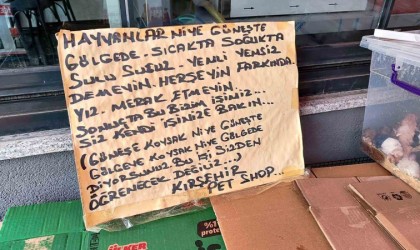 HAYVANLAR NİYE GÜNEŞTE
GÖLGEDE - SICAKTA SOĞUKTA
SULU SUSUZ - YEMLİ YEMSİZ
DEMEYİN. HERŞEYİN FARKINDA
YIZ. MERAK ETMEYİN...
SONUÇTA BU BİZİM İŞİNİZ
SİZ KENDİ İŞİNİZE BAKIN...
(GÜNEŞE KOYSAK NİYE GÜNEŞTE
GÖLGEYE KOYSAK NİYE GÖLGEDE
DİYORSUNUZ. BU İŞİ SİZDEN
ÖĞRENECEK DEĞİLİZ...)
KIRŞEHİR
PET SHOP...
ÜLKER
%1
prote